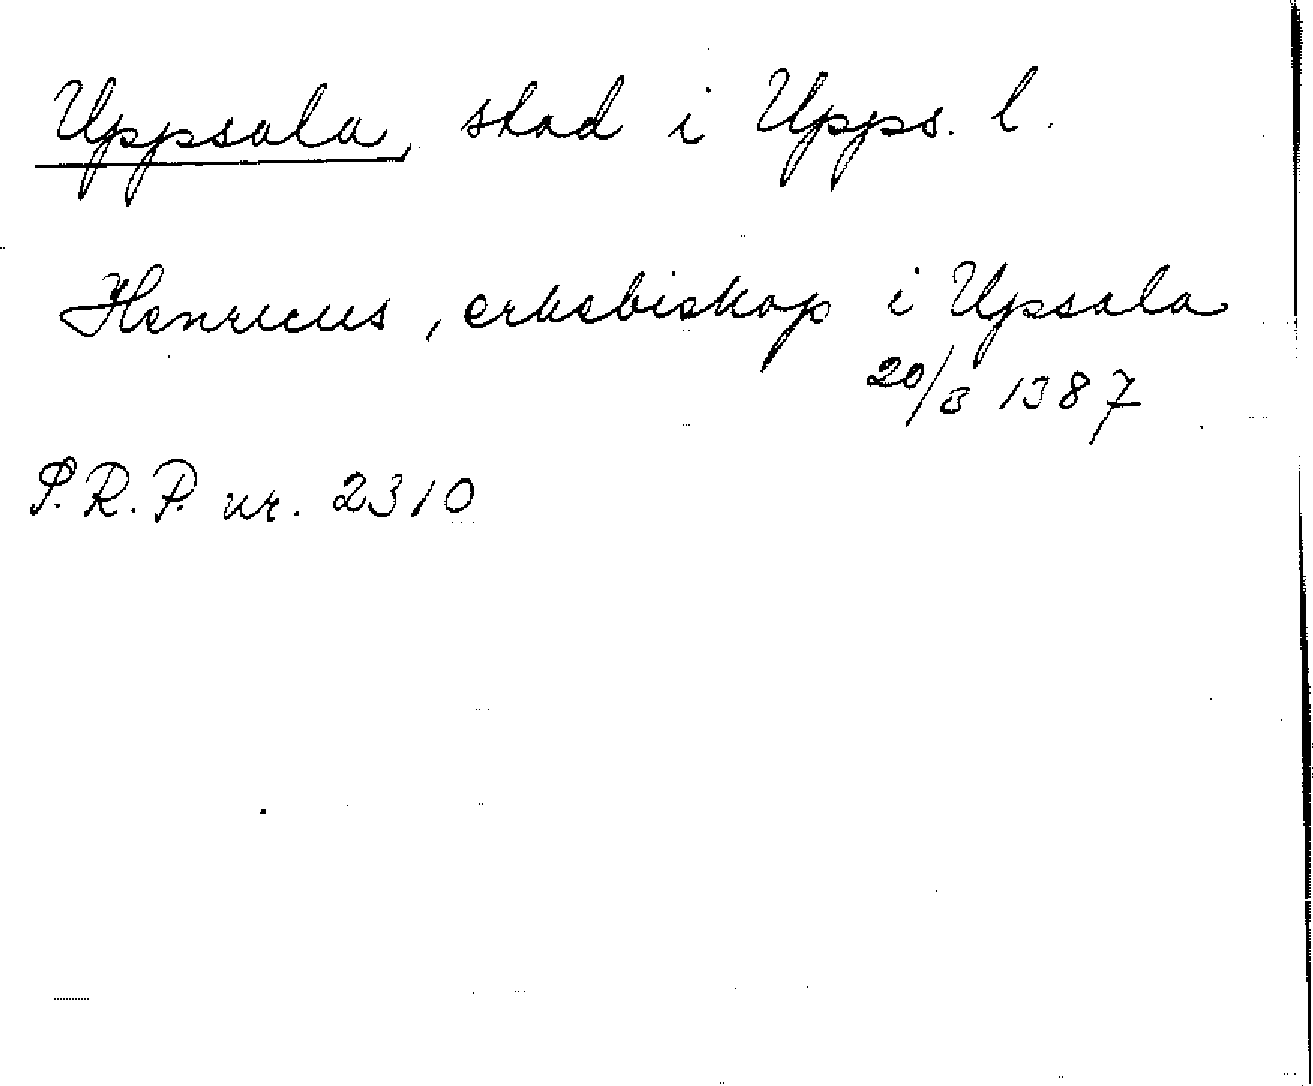 Uppsala, stad i Upps. l.
Henricus, erkebiskop i Upsala
20/3 1387
S.R.P. nr. 2310